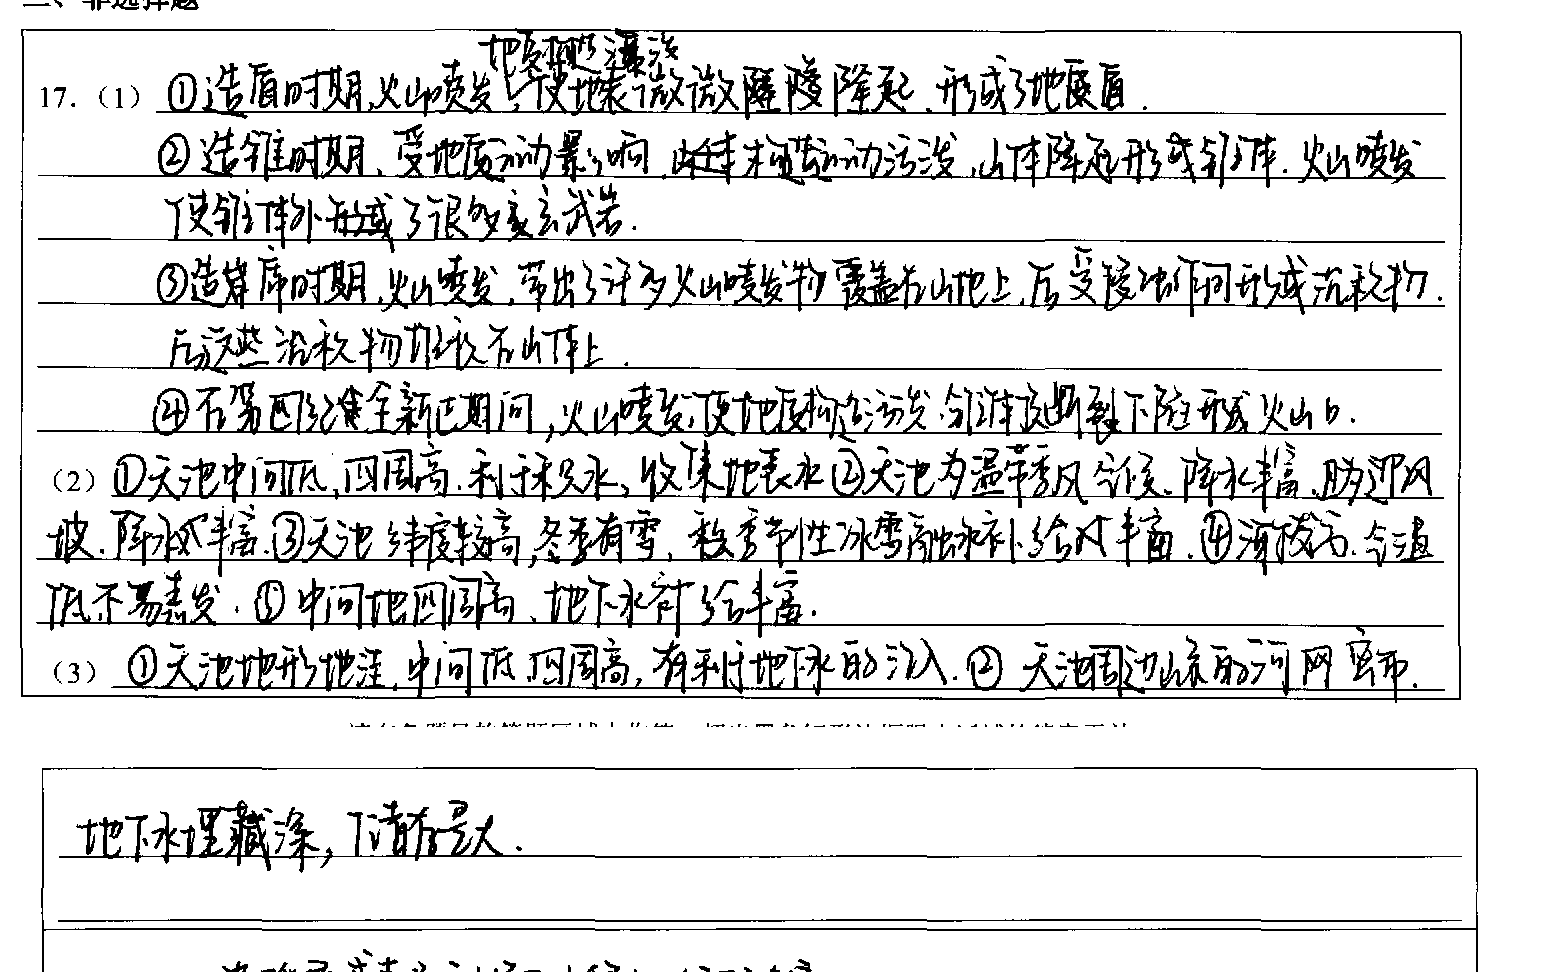 二、非选择题
地质构造活泼
17.（1）①造盾时期,火山喷发,使地表微微隆起,形成了地质盾.
②造锥时期、受地质运动影响,构造运动活泼,山体隆起形成锥体.火山喷发
使锥体外形成了很多玄武岩.
③造席时期,火山喷发,带出了许多火山喷发物覆盖在山地上,后受侵蚀作用形成沉积物.
后这些沉积物堆积在山体上.
④在第四纪全新世期间,火山喷发,使地质构造活发,锥体断裂下陷形成火山口.
（2）①天池中间低,四周高.利于积水,收集地表水②天池为温带季风气候.降水丰富,助迎风
坡.降水丰富.③天池纬度较高,冬季有雪,季节性冰雪融水补给丰富.④海拔高.气温
低不易蒸发.⑤中间地四周高、地下水补给丰富.
（3）①天池地形地洼,中间低四周高,有利于地下水的汇入.②天池周边山系的河网密布.
地下水埋藏深,下渗量大.